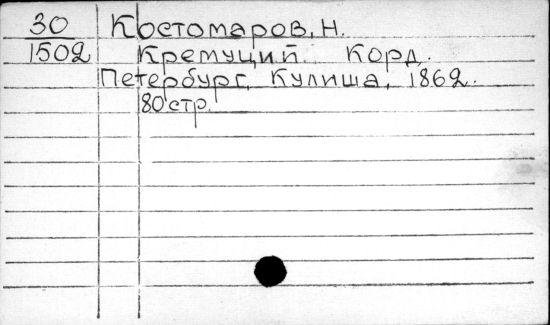 30 Костомаров, Н.
1502 Кремуций Корд.
Петербург, Кулиша, 1862.
80 стр.